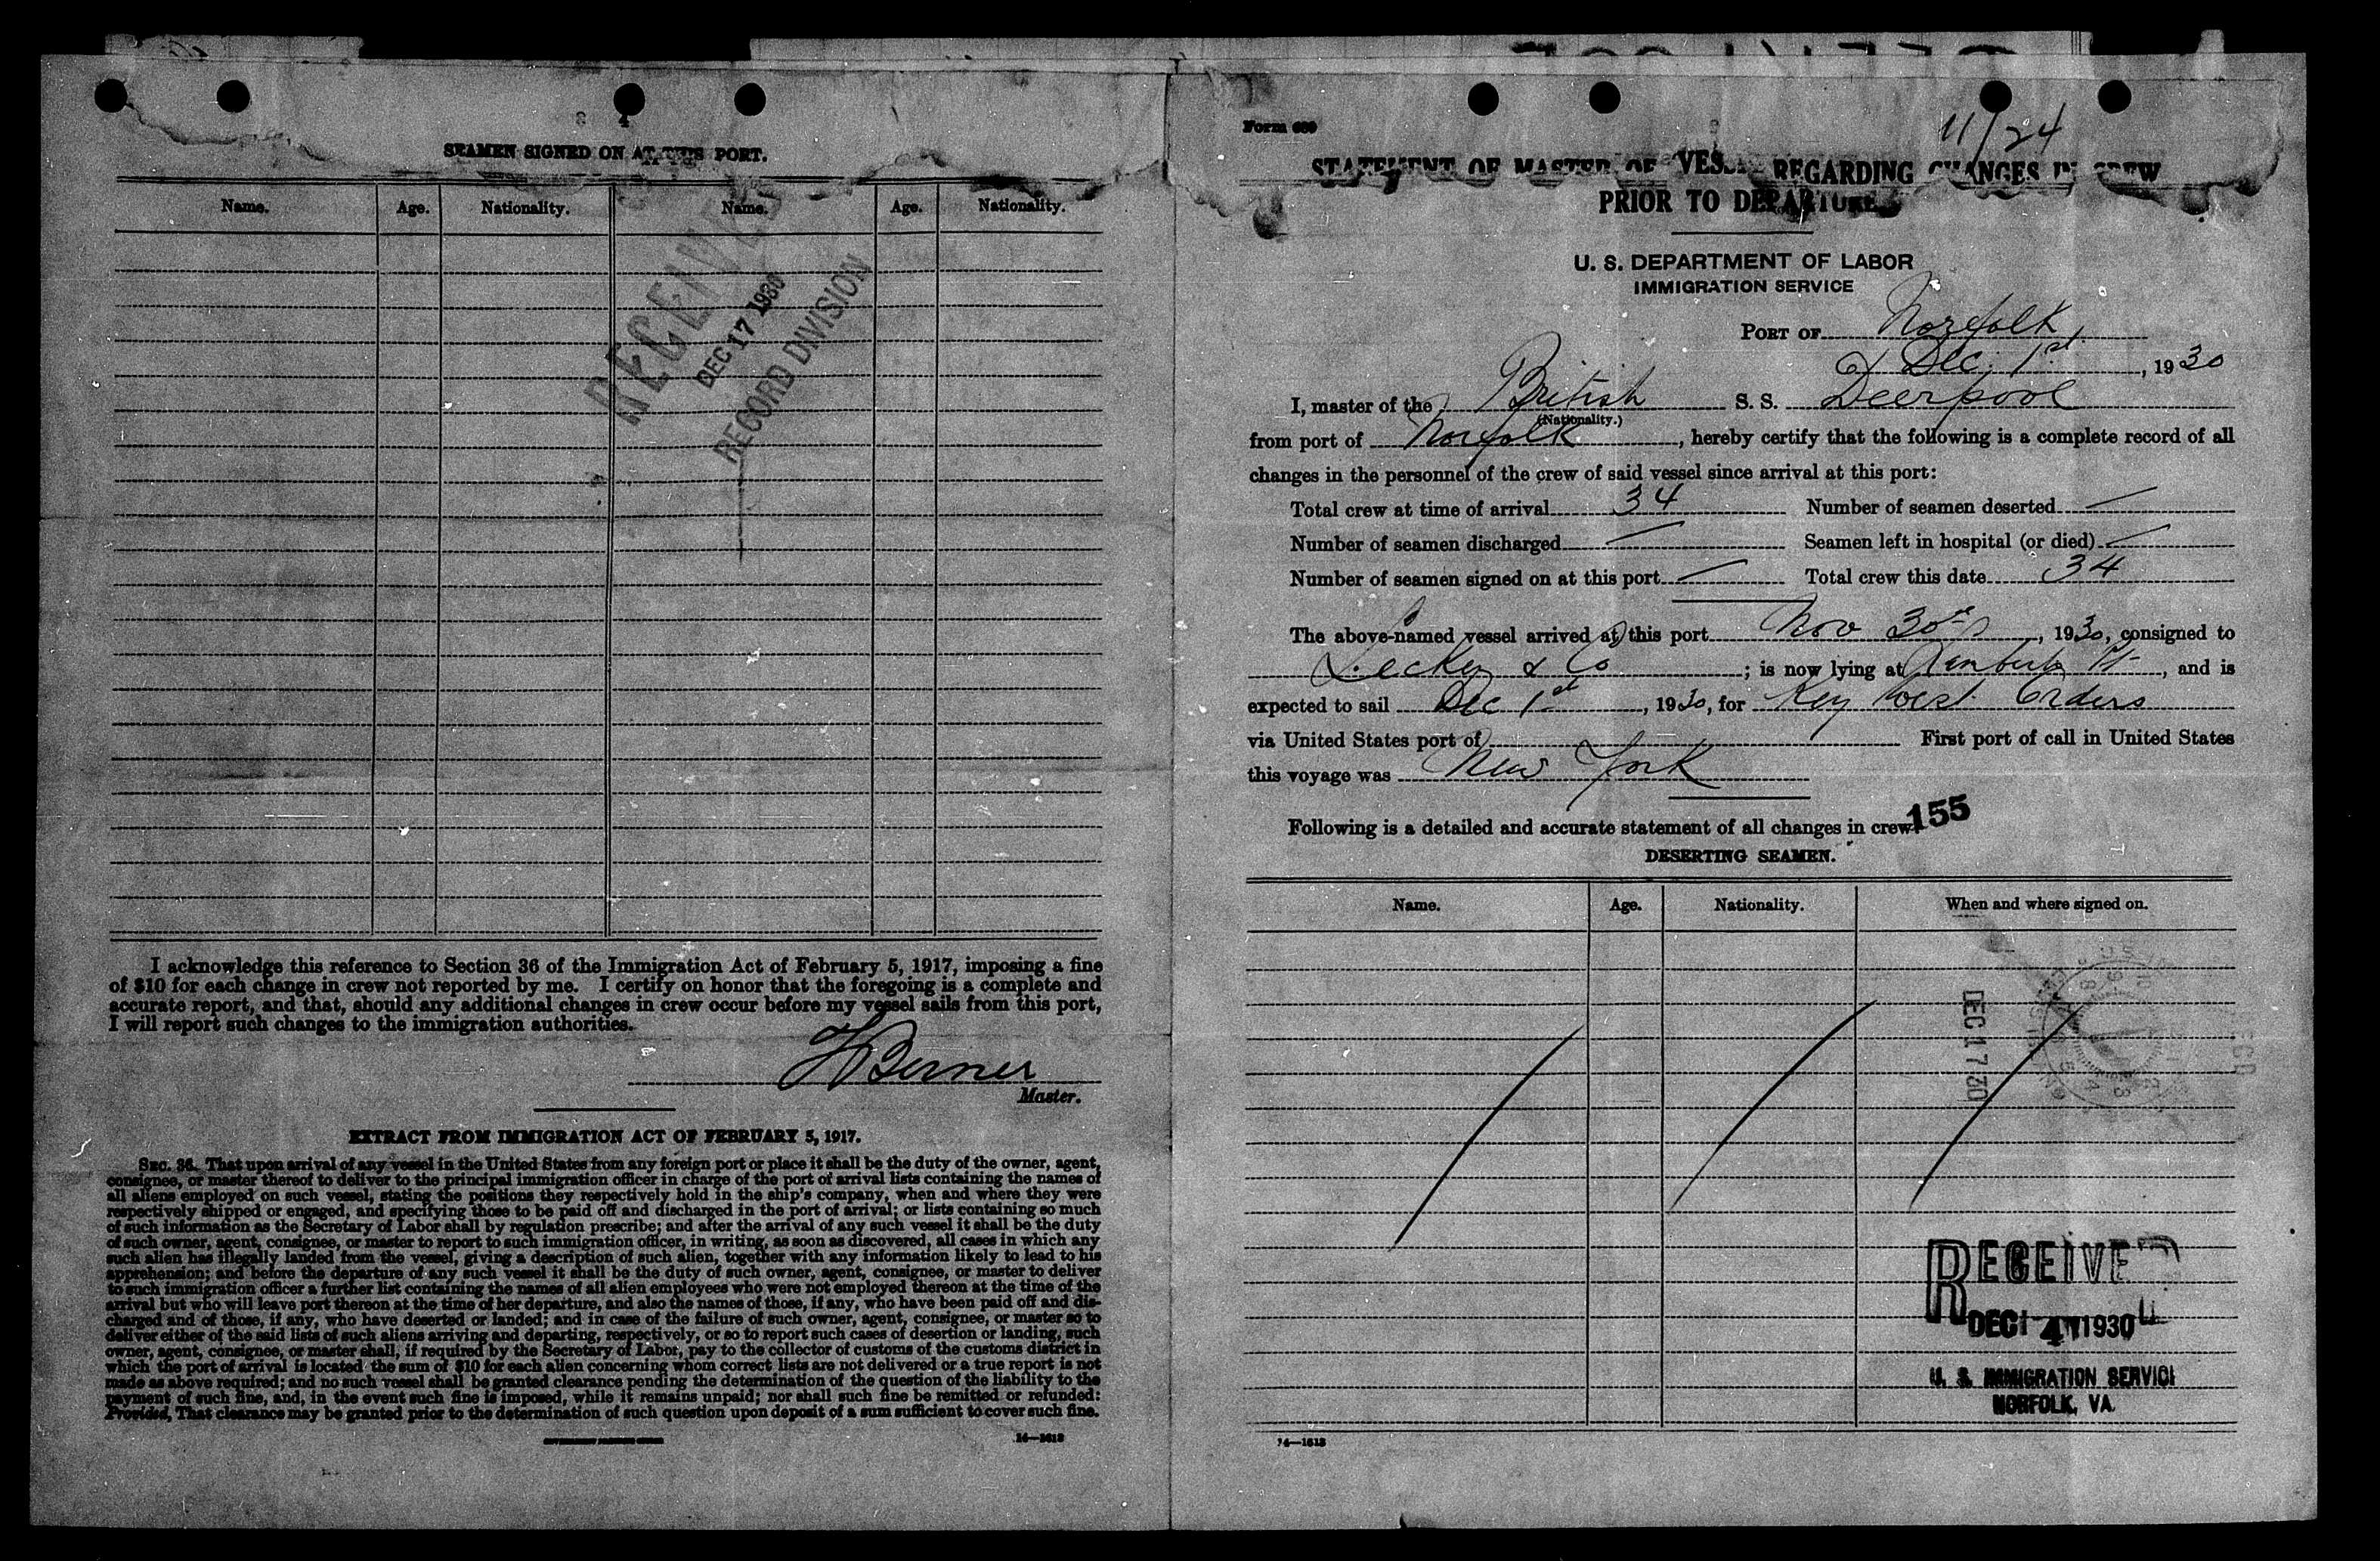 SEAMEN SIGNED ON AT THIS PORT.
Name. Age. Nationality. Name. Age. Nationality.
RECEIVED
DEC 17 1930
RECORD DIVISION
I acknowledge this reference to Section 36 of the Immigration Act of February 5, 1917, imposing a fine
of $10 for each change in crew not reported by me. I certify on honor that the foregoing is a complete and
accurate report, and that, should any additional changes in crew occur before my vessel sails from this port,
I will report such changes to the immigration authorities.
Berner
Master.
EXTRACT FROM IMMIGRATION ACT OF FEBRUARY 5, 1917.
SEC. 36. That upon arrival of any vessel in the United States from any foreign port or place it shall be the duty of the owner, agent,
consignee, or master thereof to deliver to the principal immigration officer in charge of the port of arrival lists containing the names of
all aliens employed on such vessel, stating the positions they respectively hold in the ship's company, when and where they were
respectively shipped or engaged, and specifying those to be paid off and discharged in the port of arrival; or lists containing so much
of such information as the Secretary of Labor shall by regulation prescribe; and after the arrival of any such vessel it shall be the duty
of such owner, agent, consignee, or master to report to such immigration officer, in writing, as soon as discovered, all cases in which any
such alien has illegally landed from the vessel, giving a description of such alien, together with any information likely to lead to his
apprehension; and before the departure of any such vessel it shall be the duty of such owner, agent, consignee, or master to deliver
to such immigration officer a further list containing the names of all alien employees who were not employed thereon at the time of the
arrival but who will leave port thereon at the time of her departure, and also the names of those, if any, who have been paid off and dis-
charged and of those, if any, who have deserted or landed; and in case of the failure of such owner, agent, consignee, or master so to
deliver either of the said lists of such aliens arriving and departing, respectively, or so to report such cases of desertion or landing, such
owner, agent, consignee, or master shall, if required by the Secretary of Labor, pay to the collector of customs of the customs district in
which the port of arrival is located the sum of $10 for each alien concerning whom correct lists are not delivered or a true report is not
made as above required; and no such vessel shall be granted clearance pending the determination of the question of the liability to the
payment of such fine, and, in the event such fine is imposed, while it remains unpaid; nor shall such fine be remitted or refunded:
Provided, That clearance may be granted prior to the determination of such question upon deposit of a sum sufficient to cover such fine.
14—1613
Form 689
11/24
STATEMENT OF MASTER OF VESSEL REGARDING CHANGES IN CREW
PRIOR TO DEPARTURE
U. S. DEPARTMENT OF LABOR
IMMIGRATION SERVICE
PORT OF Norfolk
Dec. 1st, 1930
I, master of the British S. S. Deerpool
(Nationality.)
from port of Norfolk, hereby certify that the following is a complete record of all
changes in the personnel of the crew of said vessel since arrival at this port:
Total crew at time of arrival 34 Number of seamen deserted —
Number of seamen discharged — Seamen left in hospital (or died) —
Number of seamen signed on at this port — Total crew this date 34
The above-named vessel arrived at this port Nov 30th, 1930, consigned to
Leckey & Co; is now lying at Pt, and is
expected to sail Dec 1st, 1930, for Key West Orders
via United States port of First port of call in United States
this voyage was New York
Following is a detailed and accurate statement of all changes in crew:
155
DESERTING SEAMEN.
Name. Age. Nationality. When and where signed on.
DEC 17 30
RECEIVED
DEC 4 1930
U. S. IMMIGRATION SERVICE
NORFOLK, VA.
14—1613